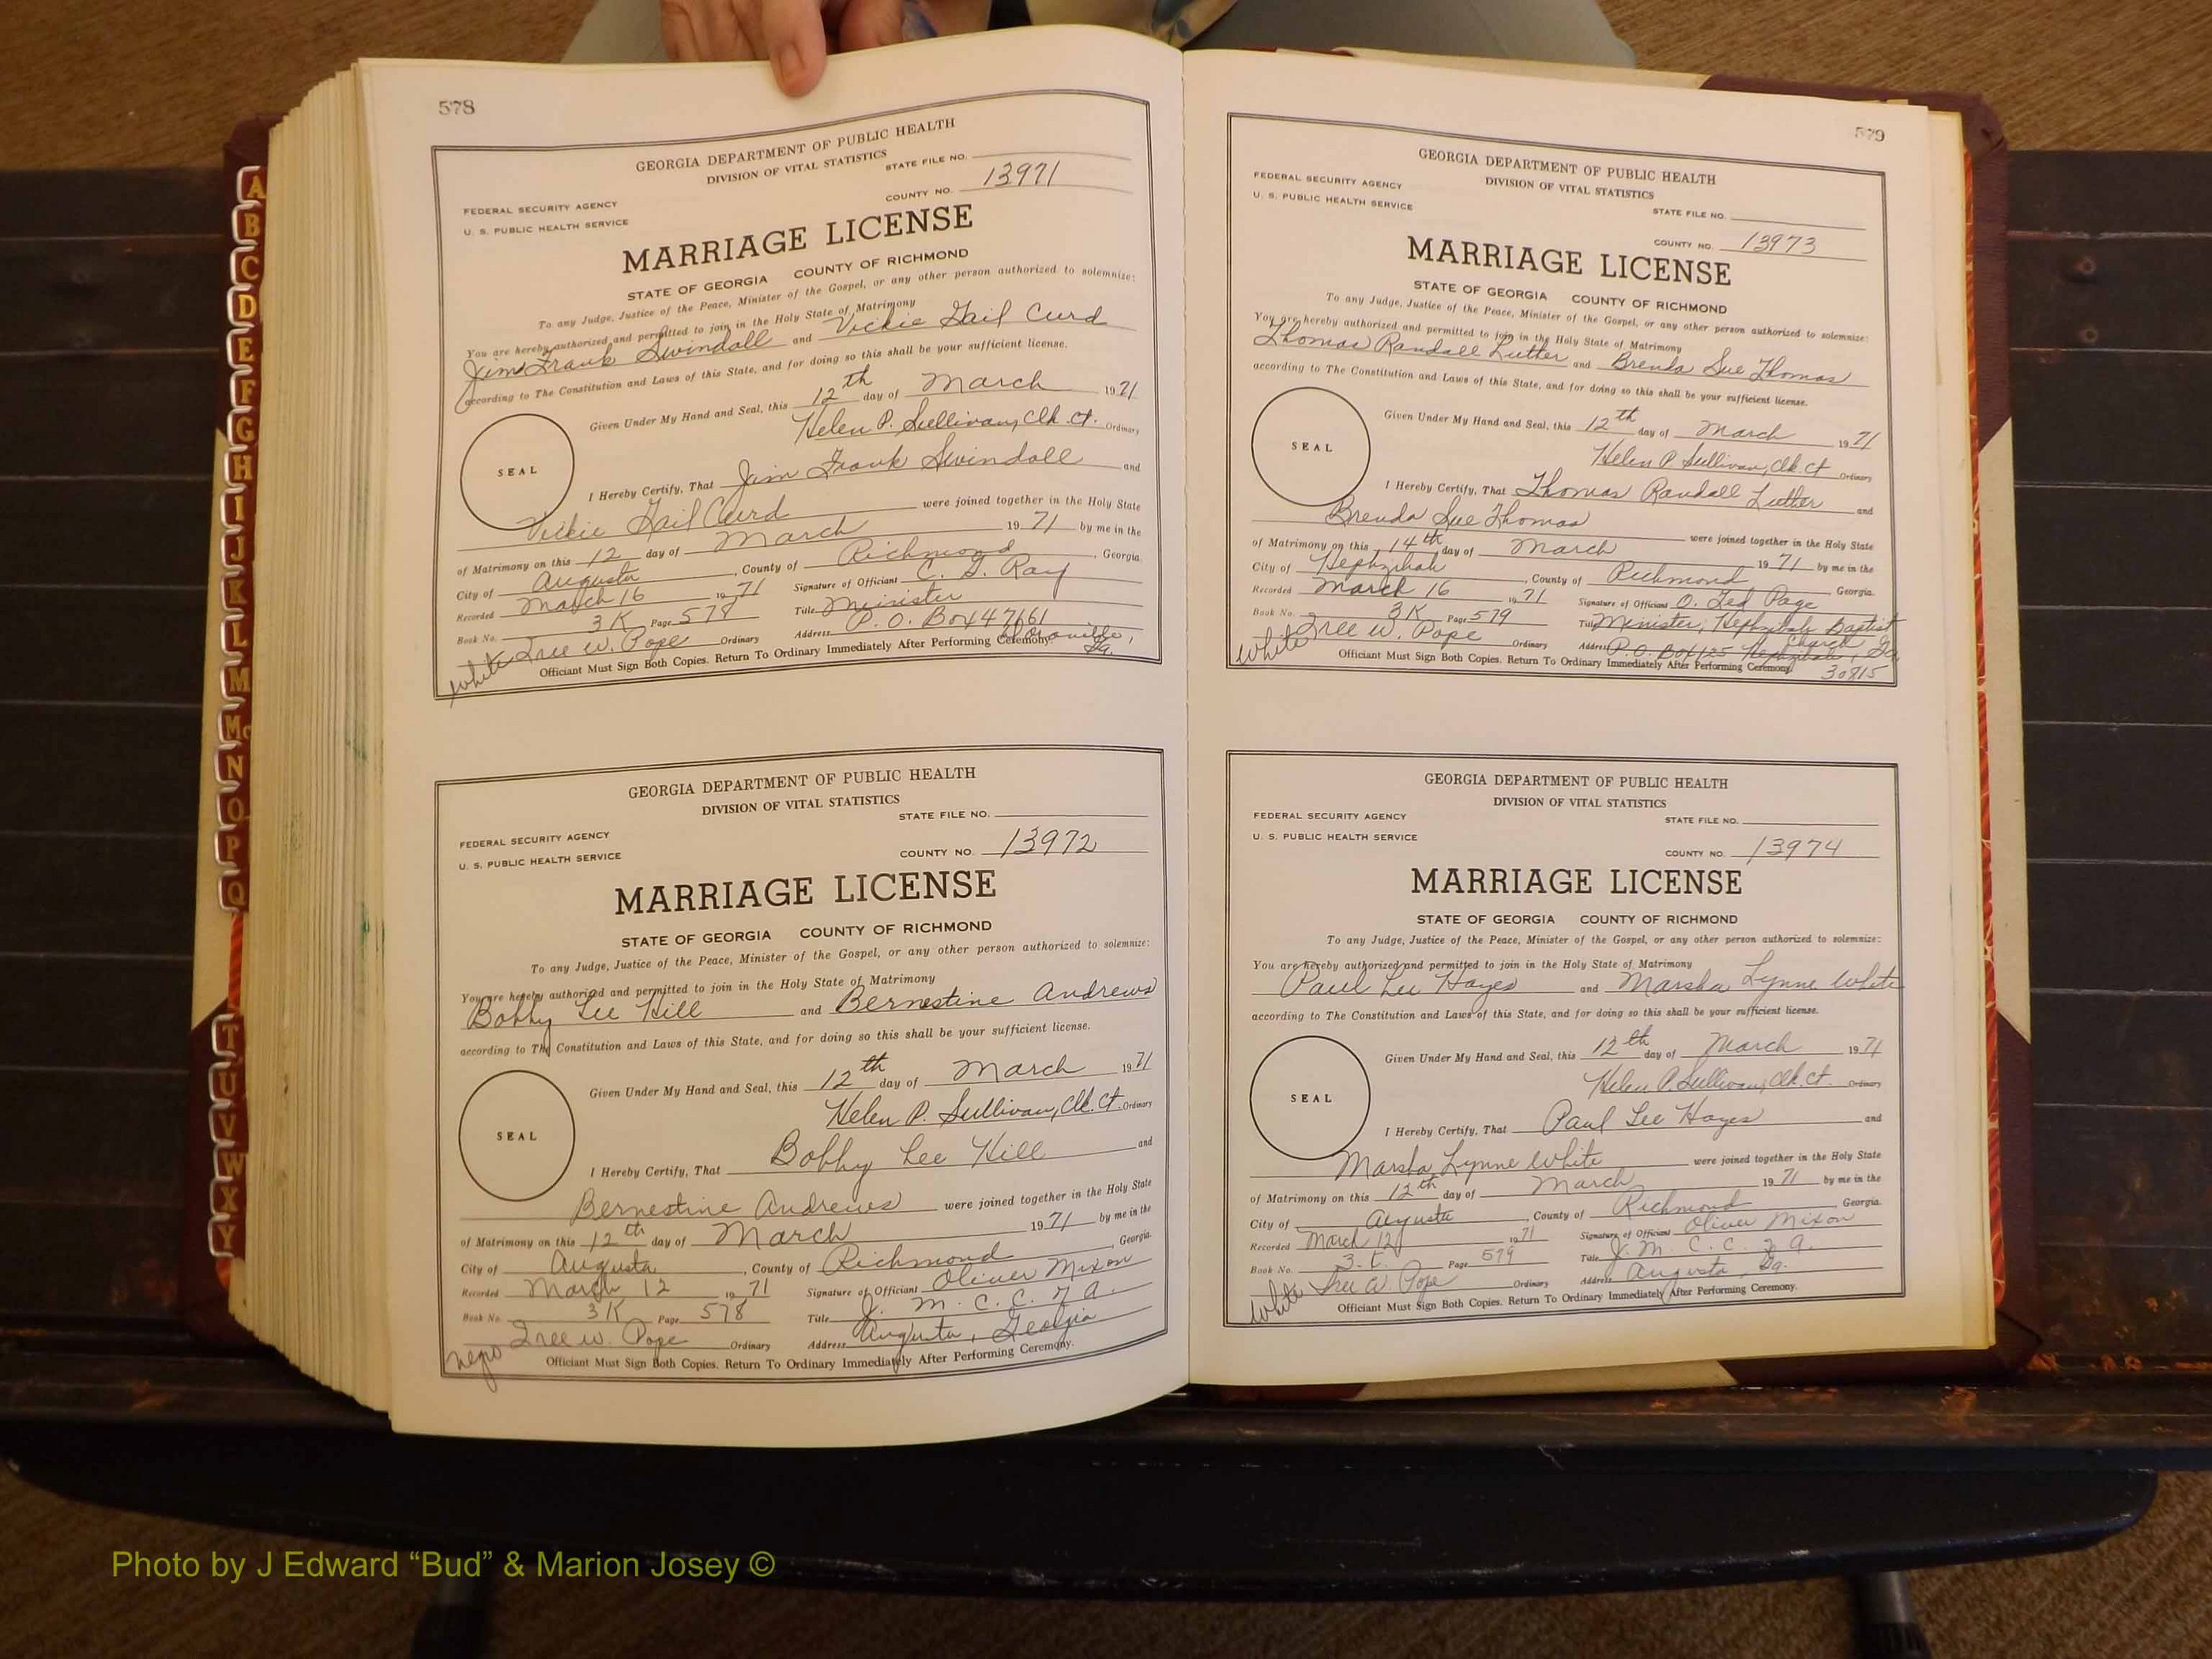 578
GEORGIA DEPARTMENT OF PUBLIC HEALTH
DIVISION OF VITAL STATISTICS
STATE FILE NO.
FEDERAL SECURITY AGENCY
COUNTY NO. 13971
U. S. PUBLIC HEALTH SERVICE
MARRIAGE LICENSE
STATE OF GEORGIA COUNTY OF RICHMOND
To any Judge, Justice of the Peace, Minister of the Gospel, or any other person authorized to solemnize:
You are hereby authorized and permitted to join in the Holy State of Matrimony
Jim Frank Swindall and Vickie Gail Curd
according to The Constitution and Laws of this State, and for doing so this shall be your sufficient license.
Given Under My Hand and Seal, this 12th day of March 1971
Helen P. Sullivan, Clk. Ct. Ordinary
SEAL
I Hereby Certify, That Jim Frank Swindall and
Vickie Gail Curd were joined together in the Holy State
of Matrimony on this 12 day of March 1971 by me in the
City of Augusta, County of Richmond, Georgia.
Recorded March 16 1971 Signature of Officiant C. G. Ray
Book No. 3K Page 578 Title Minister
Tree W. Pope Ordinary Address P. O. Box 47161
Ga.
white
Officiant Must Sign Both Copies. Return To Ordinary Immediately After Performing Ceremony.
GEORGIA DEPARTMENT OF PUBLIC HEALTH
DIVISION OF VITAL STATISTICS
STATE FILE NO.
FEDERAL SECURITY AGENCY
U. S. PUBLIC HEALTH SERVICE
COUNTY NO. 13972
MARRIAGE LICENSE
STATE OF GEORGIA COUNTY OF RICHMOND
To any Judge, Justice of the Peace, Minister of the Gospel, or any other person authorized to solemnize:
You are hereby authorized and permitted to join in the Holy State of Matrimony
Bobby Lee Hill and Bernestine Andrews
according to The Constitution and Laws of this State, and for doing so this shall be your sufficient license.
Given Under My Hand and Seal, this 12th day of March 1971
Helen P. Sullivan, Clk. Ct. Ordinary
SEAL
I Hereby Certify, That Bobby Lee Hill and
Bernestine Andrews were joined together in the Holy State
of Matrimony on this 12th day of March 1971 by me in the
City of Augusta, County of Richmond Georgia.
Recorded March 12 1971 Signature of Officiant Oliver Mixon
Book No. 3K Page 578 Title J. M. C. C. 7 A.
Tree W. Pope Ordinary Address Augusta, Georgia
negro
Officiant Must Sign Both Copies. Return To Ordinary Immediately After Performing Ceremony.
579
GEORGIA DEPARTMENT OF PUBLIC HEALTH
DIVISION OF VITAL STATISTICS
FEDERAL SECURITY AGENCY
U. S. PUBLIC HEALTH SERVICE
STATE FILE NO.
COUNTY NO. 13973
MARRIAGE LICENSE
STATE OF GEORGIA COUNTY OF RICHMOND
To any Judge, Justice of the Peace, Minister of the Gospel, or any other person authorized to solemnize:
You are hereby authorized and permitted to join in the Holy State of Matrimony
Thomas Randall Lutter and Brenda Sue Thomas
according to The Constitution and Laws of this State, and for doing so this shall be your sufficient license.
Given Under My Hand and Seal, this 12th day of March 1971
Helen P. Sullivan, Clk. Ct Ordinary
SEAL
I Hereby Certify, That Thomas Randall Lutter and
Brenda Sue Thomas were joined together in the Holy State
of Matrimony on this 14th day of March 1971 by me in the
City of Hephzibah, County of Richmond, Georgia.
Recorded March 16 1971 Signature of Officiant O. Ted Page
Book No. 3K Page 579 Title Minister, Hephzibah Baptist Church
Tree W. Pope Ordinary Address P. O. Box 125 Hephzibah, Ga.
30815
white
Officiant Must Sign Both Copies. Return To Ordinary Immediately After Performing Ceremony.
GEORGIA DEPARTMENT OF PUBLIC HEALTH
DIVISION OF VITAL STATISTICS
FEDERAL SECURITY AGENCY
STATE FILE NO.
U. S. PUBLIC HEALTH SERVICE
COUNTY NO. 13974
MARRIAGE LICENSE
STATE OF GEORGIA COUNTY OF RICHMOND
To any Judge, Justice of the Peace, Minister of the Gospel, or any other person authorized to solemnize:
You are hereby authorized and permitted to join in the Holy State of Matrimony
Paul Lee Hayes and Marsha Lynne White
according to The Constitution and Laws of this State, and for doing so this shall be your sufficient license.
Given Under My Hand and Seal, this 12th day of March 1971
Helen P. Sullivan, Clk. Ct. Ordinary
SEAL
I Hereby Certify, That Paul Lee Hayes and
Marsha Lynne White were joined together in the Holy State
of Matrimony on this 12th day of March 1971 by me in the
City of Augusta, County of Richmond Georgia.
Recorded March 12 1971 Signature of Officiant Oliver Mixon
Book No. Page 579 Title J. M. C. C. 7 A.
Tree W. Pope Ordinary Address Augusta, Ga.
white
Officiant Must Sign Both Copies. Return To Ordinary Immediately After Performing Ceremony.
A
B
C
D
E
F
G
H
I
J
K
L
M
Mc
N
O
P
Q
T
U
V
W
X
Y
Photo by J Edward “Bud” & Marion Josey ©